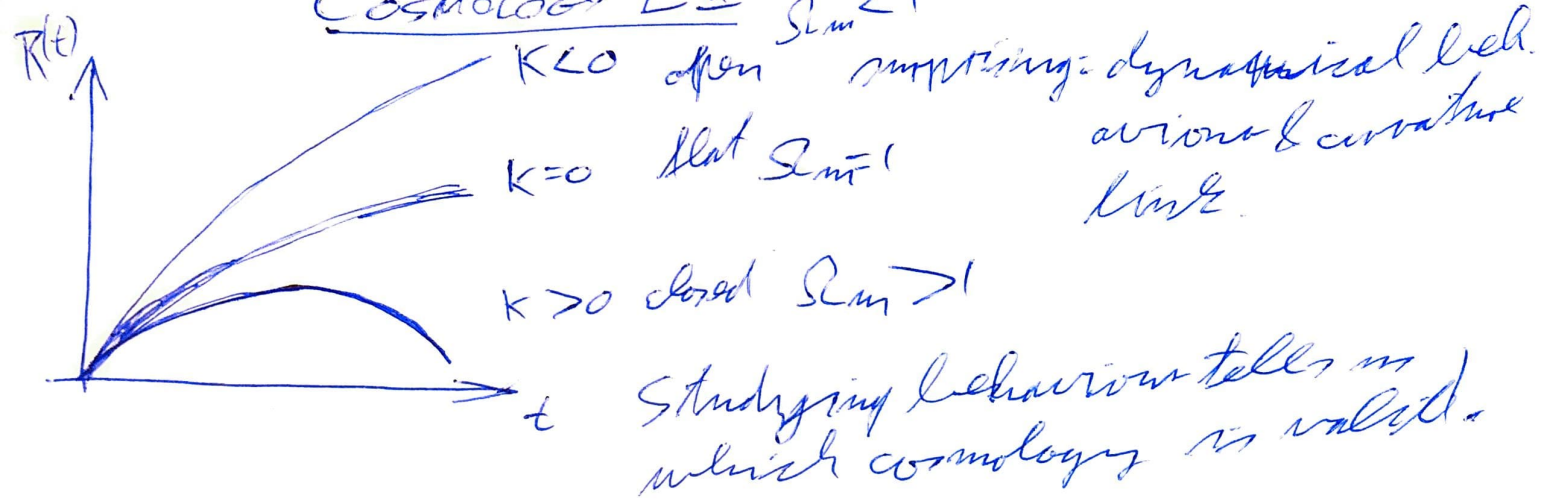 Cosmology
Ωm<1
R(t)
K<0 open surprising: dynamical beh.
aviour & curvature
link.
K=0 flat Ωm=1
K>0 closed Ωm>1
t
Studying behaviour tells us
which cosmology is valid.